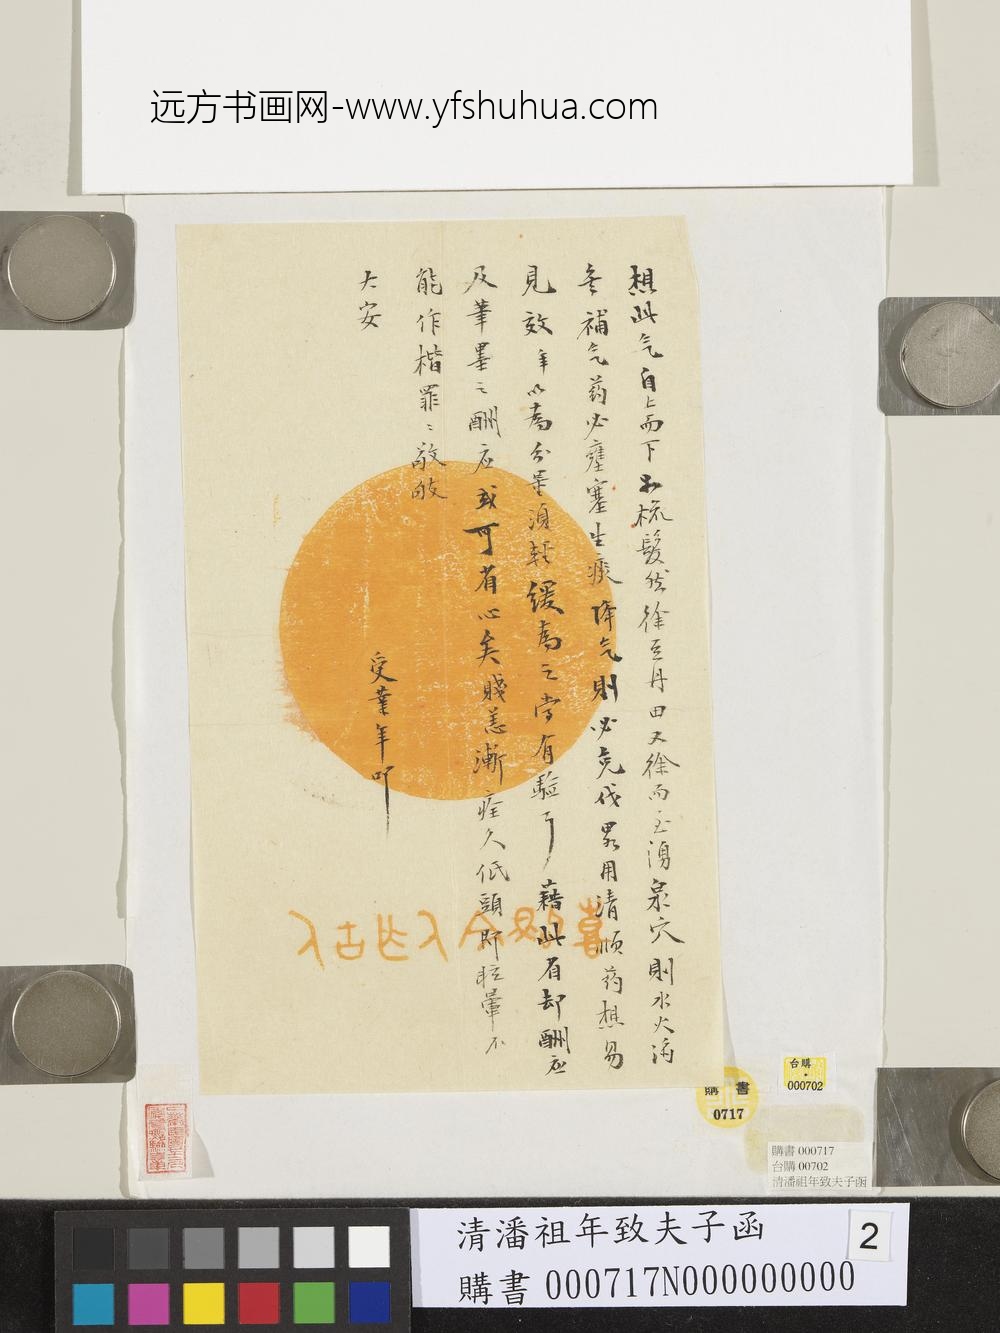 远方书画网-www.yfshuhua.com
想此气自上而下如梳髮然徐至丹田又徐而至湧泉穴則水火济
矣補气药必壅塞生痰降气則必克伐畧用清順药想易
見效年以為分量須輕緩為之當有驗耳藉此省却酬应
及筆墨之酬应或可省心矣賤恙漸痊久低頭即眩暈不
能作楷罪〻敬敂
大安
受業年叩
購書
0717
台購
000702
購書 000717
台購 00702
清潘祖年致夫子函
清潘祖年致夫子函
2
購書 000717N000000000